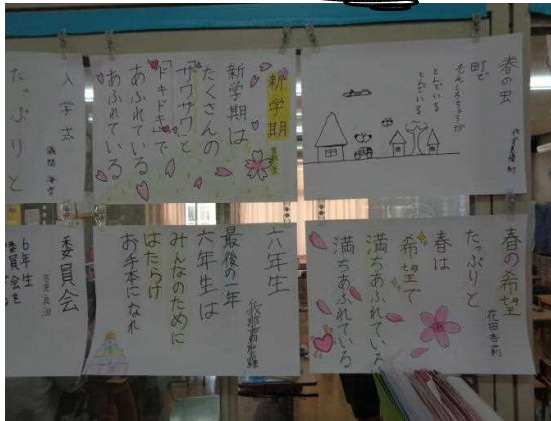 春の虫
町で
そんちょうが
とんでいる
とんでいる
新学期
新学期は
たくさんの
「ザワザワ」と
「ドキドキ」で
あふれている
あふれている
入学式
たっぷりと
春の希望
花田杏莉
たっぷりと
春は
希望で
満ちあふれている
満ちあふれている
六年生
最後の一年
六年生は
みんなのために
はたらけ
お手本になれ
委員会
6年生
委員会を